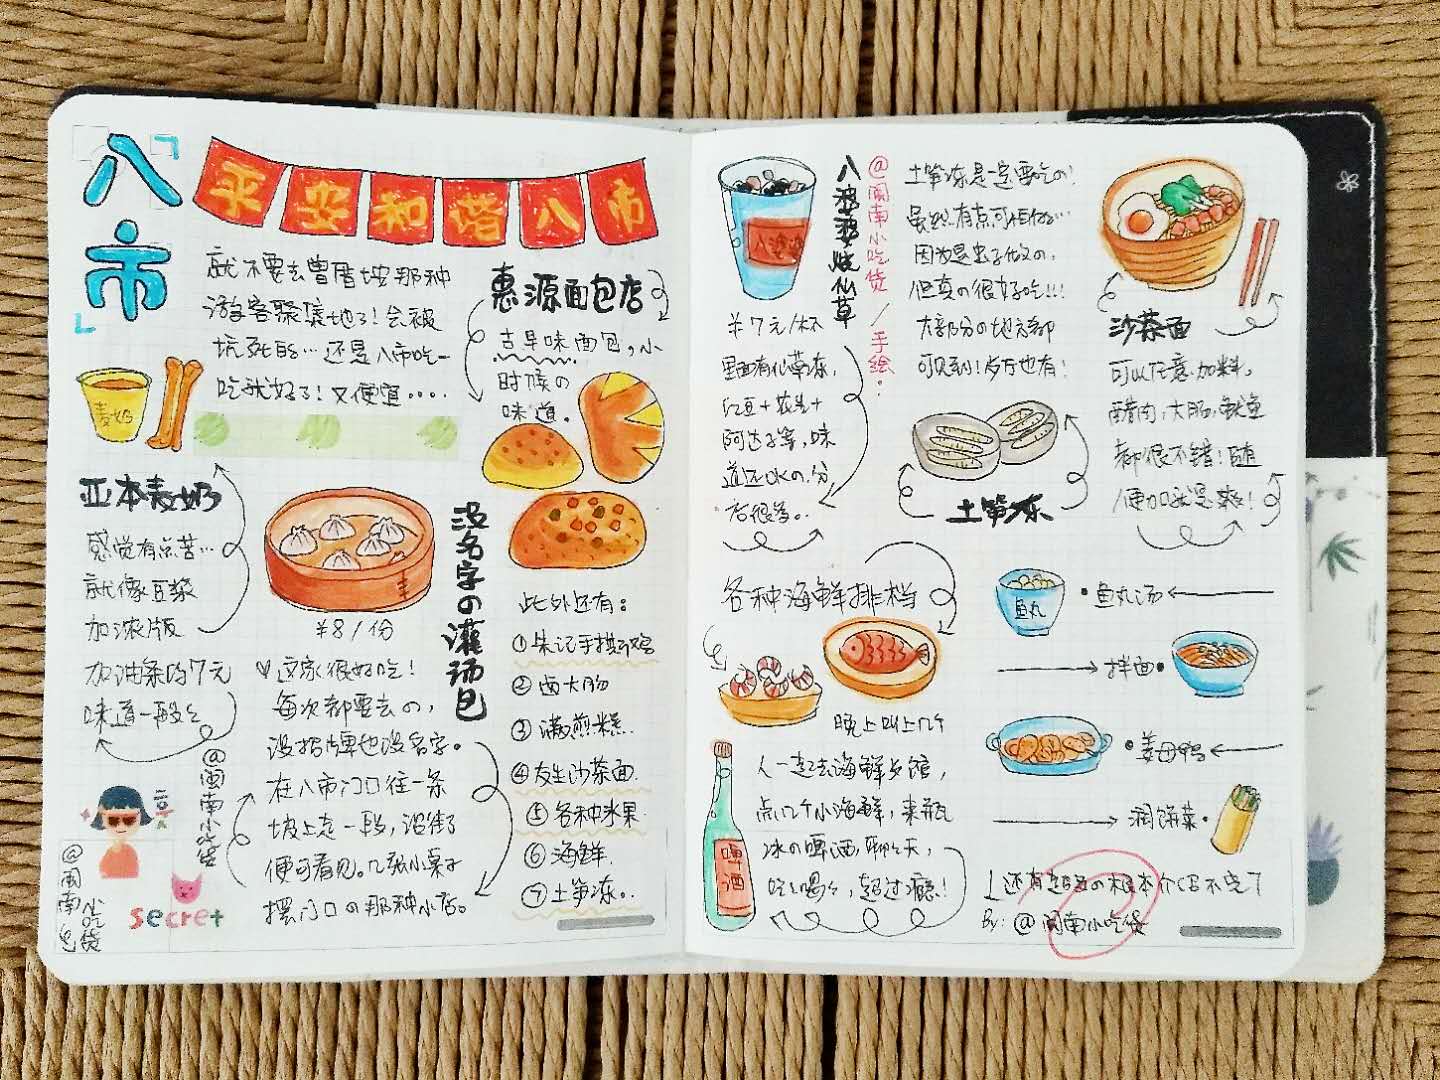 八市
平安和谐八市
就不要去曾厝垵那种
游客聚集地了！会被
坑死的…还是八市吃一
吃就好了！又便宜....
麦奶
亚本麦奶
感觉有点苦…
就像豆浆
加浓版
加油条的7元
味道一般般
@闽南小吃货
@闽南小吃货
secret
¥8/份
♥这家很好吃！
每次都要去的，
没招牌也没名字。
在八市门口往一条
坡上走一段，沿街
便可看见。几张小桌子
摆门口の那种小店。
没名字の灌汤包
惠源面包店
古早味面包，小
时候の
味道。
此外还有：
①朱记手撕鸡
②卤大肠
③满煎糕.
④友生沙茶面.
⑤各种水果.
⑥海鲜.
⑦土笋冻..
八婆婆
八婆婆烧仙草
@闽南小吃货/手绘.
¥7元/杯
里面有仙草冻，
红豆+花生+
阿达子等，味
道还OK的.分
店很多。.
土笋冻是一定要吃の！
虽然有点可怕…
因为是虫子做の，
但真の很好吃!!!
大部分の地方都
可见到！岁厅也有！
土笋冻
沙茶面
可以任意加料，
醋肉，大肠，鱿鱼
都很不错！随
便加就是爽！
各种海鲜排档
晚上叫上几个
人一起去海鲜乡馆，
点几个小海鲜，来瓶
冰の啤酒，聊聊天，
吃吃喝喝，超过瘾！
啤酒
鱼丸
•鱼丸汤
拌面•
•姜母鸭
润饼菜•
还有超多の根本介绍不完了
By: @闽南小吃货